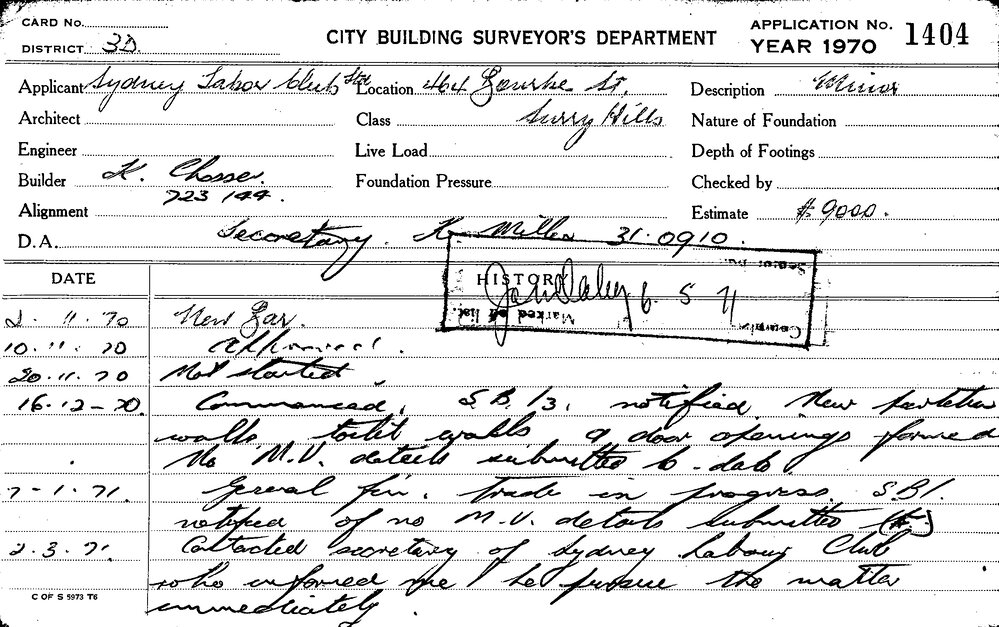 CARD No.
DISTRICT 3D.
CITY BUILDING SURVEYOR'S DEPARTMENT
APPLICATION No. 1404
YEAR 1970
Applicant Sydney Labor Club Ltd Location 464 Bourke St. Description Minor
Architect Class Surry Hills Nature of Foundation
Engineer Live Load Depth of Footings
Builder K. Chosser. Foundation Pressure Checked by
723 144.
Alignment Estimate $9000.
D.A. Secretary. K. Miller 31.0910.
DATE HISTORY
John Daley 6 5 71
Marked off list.
2. 11. 70 New Bar.
10. 11. 70 Approved.
20. 11. 70 Not started
16. 12 - 70. Commenced, S.B. 13. notified. New partition
walls toilet walls & door openings formed
No M.V. details submitted to-date
7 - 1. 71. General fin. trade in progress. S.B.I.
notified of no M.V. details submitted
2. 3. 71. Contacted secretary of Sydney Labour Club
who informed me he pursue the matter
immediately.
C OF S 5973 T6